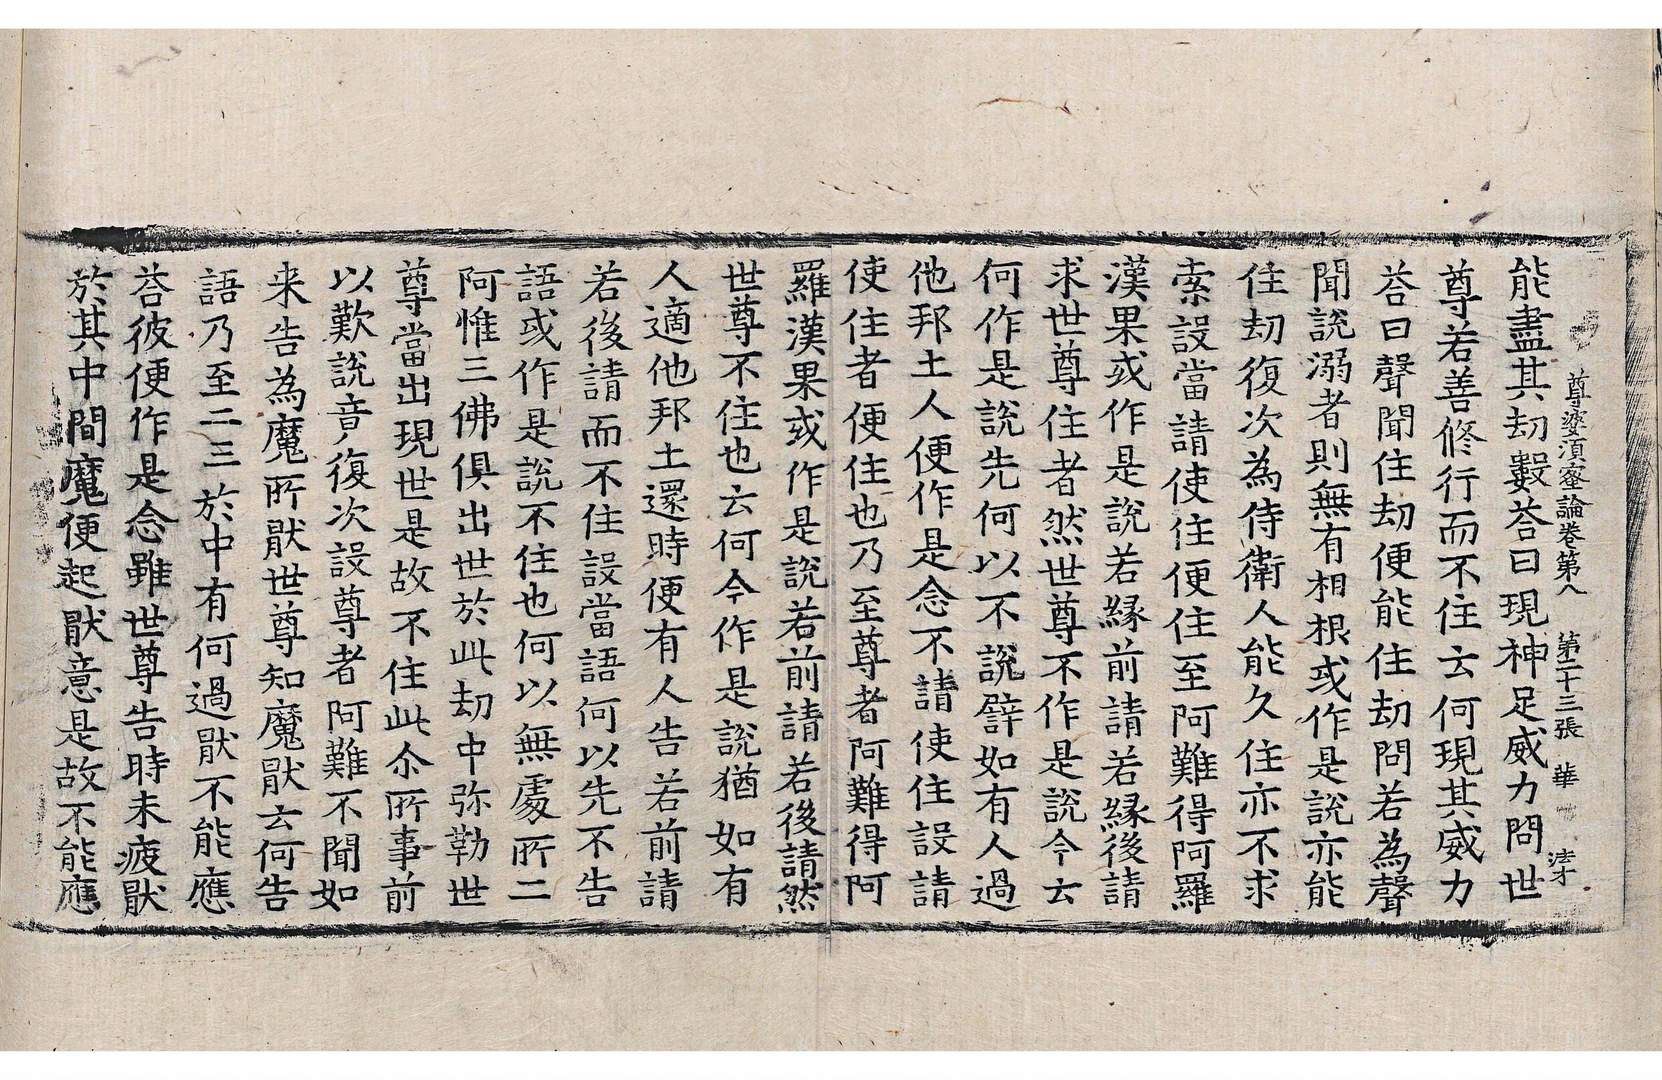 尊婆須蜜論卷第八 第二十三張 華 法才
能盡其劫數荅曰現神足威力問世
尊若善修行而不住云何現其威力
荅曰聲聞住劫便能住劫問若為聲
聞說溺者則無有相根或作是說亦能
住劫復次為侍衛人能久住亦不求
索設當請使住便住至阿難得阿羅
漢果或作是說若緣前請若緣後請
求世尊住者然世尊不作是說今云
何作是說先何以不說譬如有人過
他邦土人便作是念不請使住設請
使住者便住也乃至尊者阿難得阿
羅漢果或作是說若前請若後請然
世尊不住也云何今作是說猶如有
人適他邦土還時便有人告若前請
若後請而不住設當語何以先不告
語或作是說不住也何以無處所二
阿惟三佛俱出世於此劫中弥勒世
尊當出現世是故不住此尒所事前
以歎說音復次設尊者阿難不聞如
来告為魔所猒世尊知魔猒云何告
語乃至二三於中有何過猒不能應
荅彼便作是念雖世尊告時未疲猒
於其中間魔便起猒意是故不能應